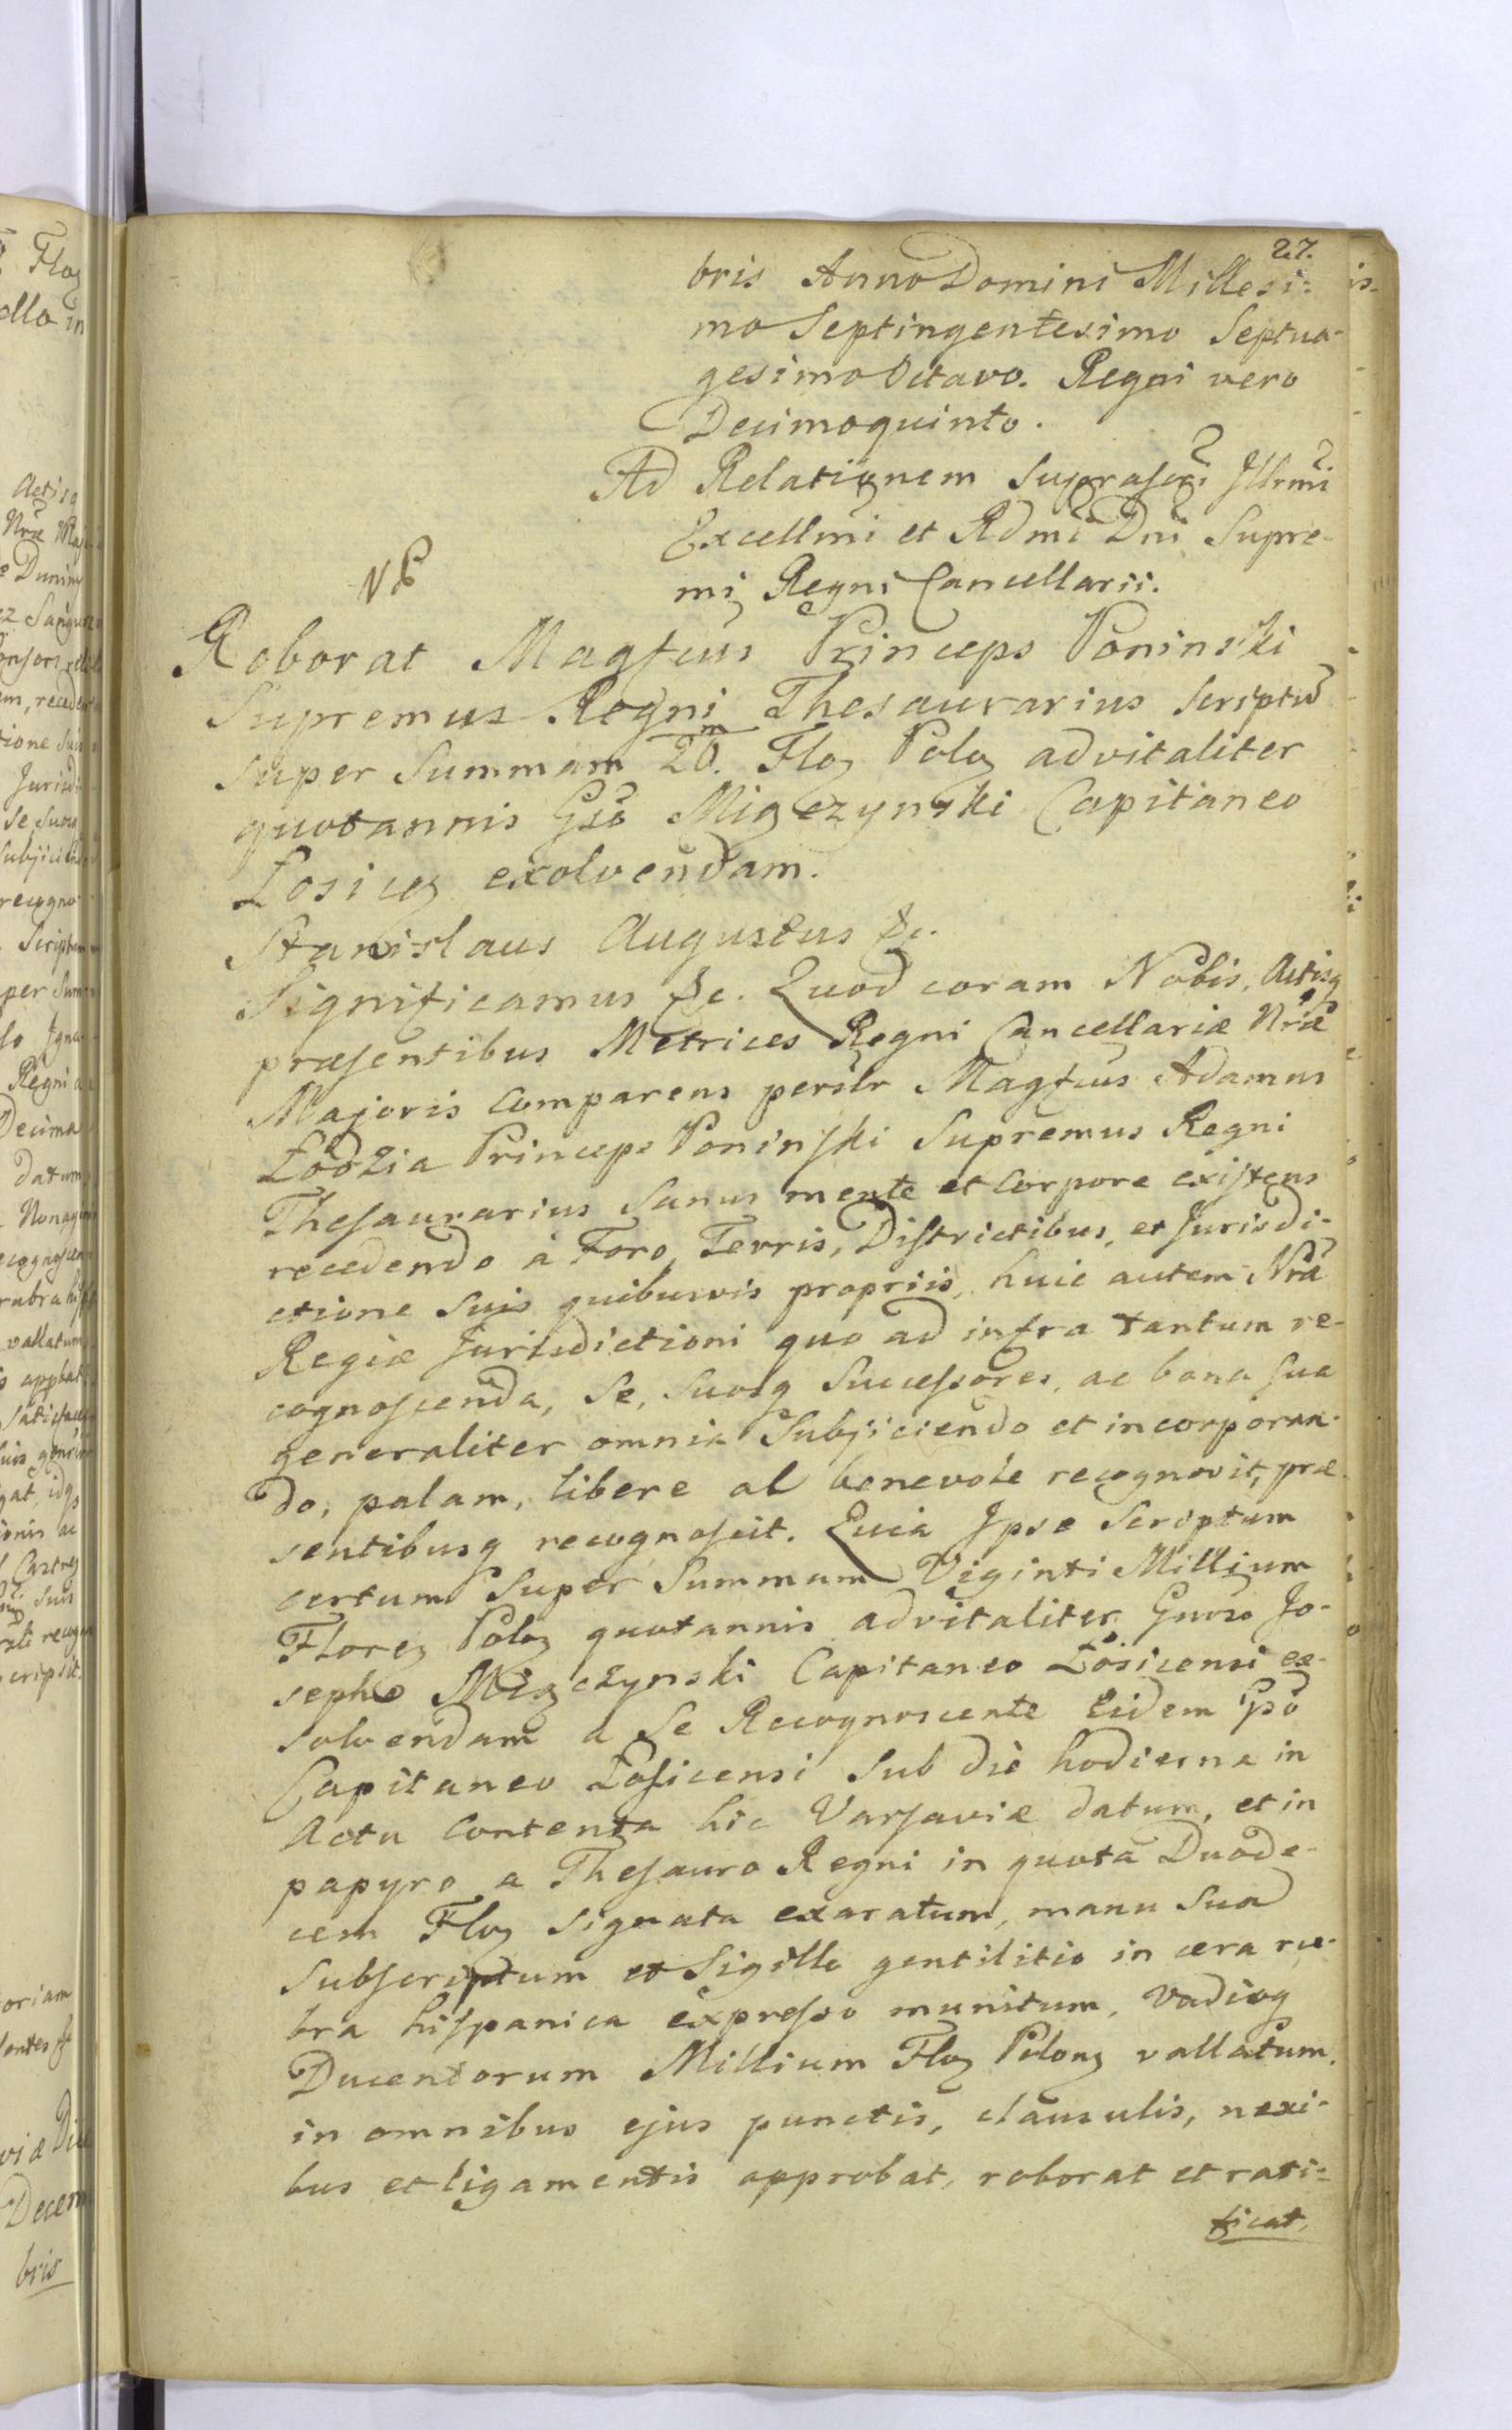 27.
bris Anno Domini Millesi:
mo Septingentesimo Septua-
gesimo Octavo. Regni vero
Decimoquinto.
Ad Relationem suprascri Illrmi
Excellmi et Rdmi Dni Supre-
mi Regni Cancellarii.
Roborat Magfcus Princeps Poninski
Supremus Regni Thesaurarius scriptu
super Summam 20.m Floz Poloz advitaliter
quotannis Gso Miączynski Capitaneo
Łosicez exolvendam.
Stanislaus Augustus &c.
Significamus &c. Quod coram Nobis, Actisq
præsentibus Metrices Regni Cancellariæ Nræ
Majoris comparens persłr Magfcus Adamus
Łodzia Princeps Poninski Supremus Regni
Thesaurarius sanus mente et corpore existens
recedendo à Foro, Terris, Districtibus, et Jurisdi-
ctione suis quibusvis propriis, huic autem Nræ
Regiæ Jurisdictioni quo ad infra tantum re-
cognoscenda, se, suosq successores, ac bona sua
generaliter omnia subjiciendo et incorporan-
do, palam, libere ac benevole recognovit, præ-
sentibusq recognoscit. Quia Ipse Scriptum
certum super Summam Viginti Millium
Florez Poloz quotannis advitaliter Gnoso Jo-
sepho Miączynski Capitaneo Łosicensi ex-
solvendam a se Recognoscente Eidem Gso
Capitaneo Łosicensi sub die hodierna in
Actu contenta hic Varsaviæ datum, et in
papyro a Thesauro Regni in quota Duode-
cem Floz signata exaratum, manu sua
subscriptum et Sigillo gentilitio in cera ru-
bra hispanica expresso munitum, vadioq
Ducentorum Millium Floz Polonz vallatum,
in omnibus ejus punctis, clausulis, nexi-
bus et ligamentis approbat, roborat et rati-
ficat,